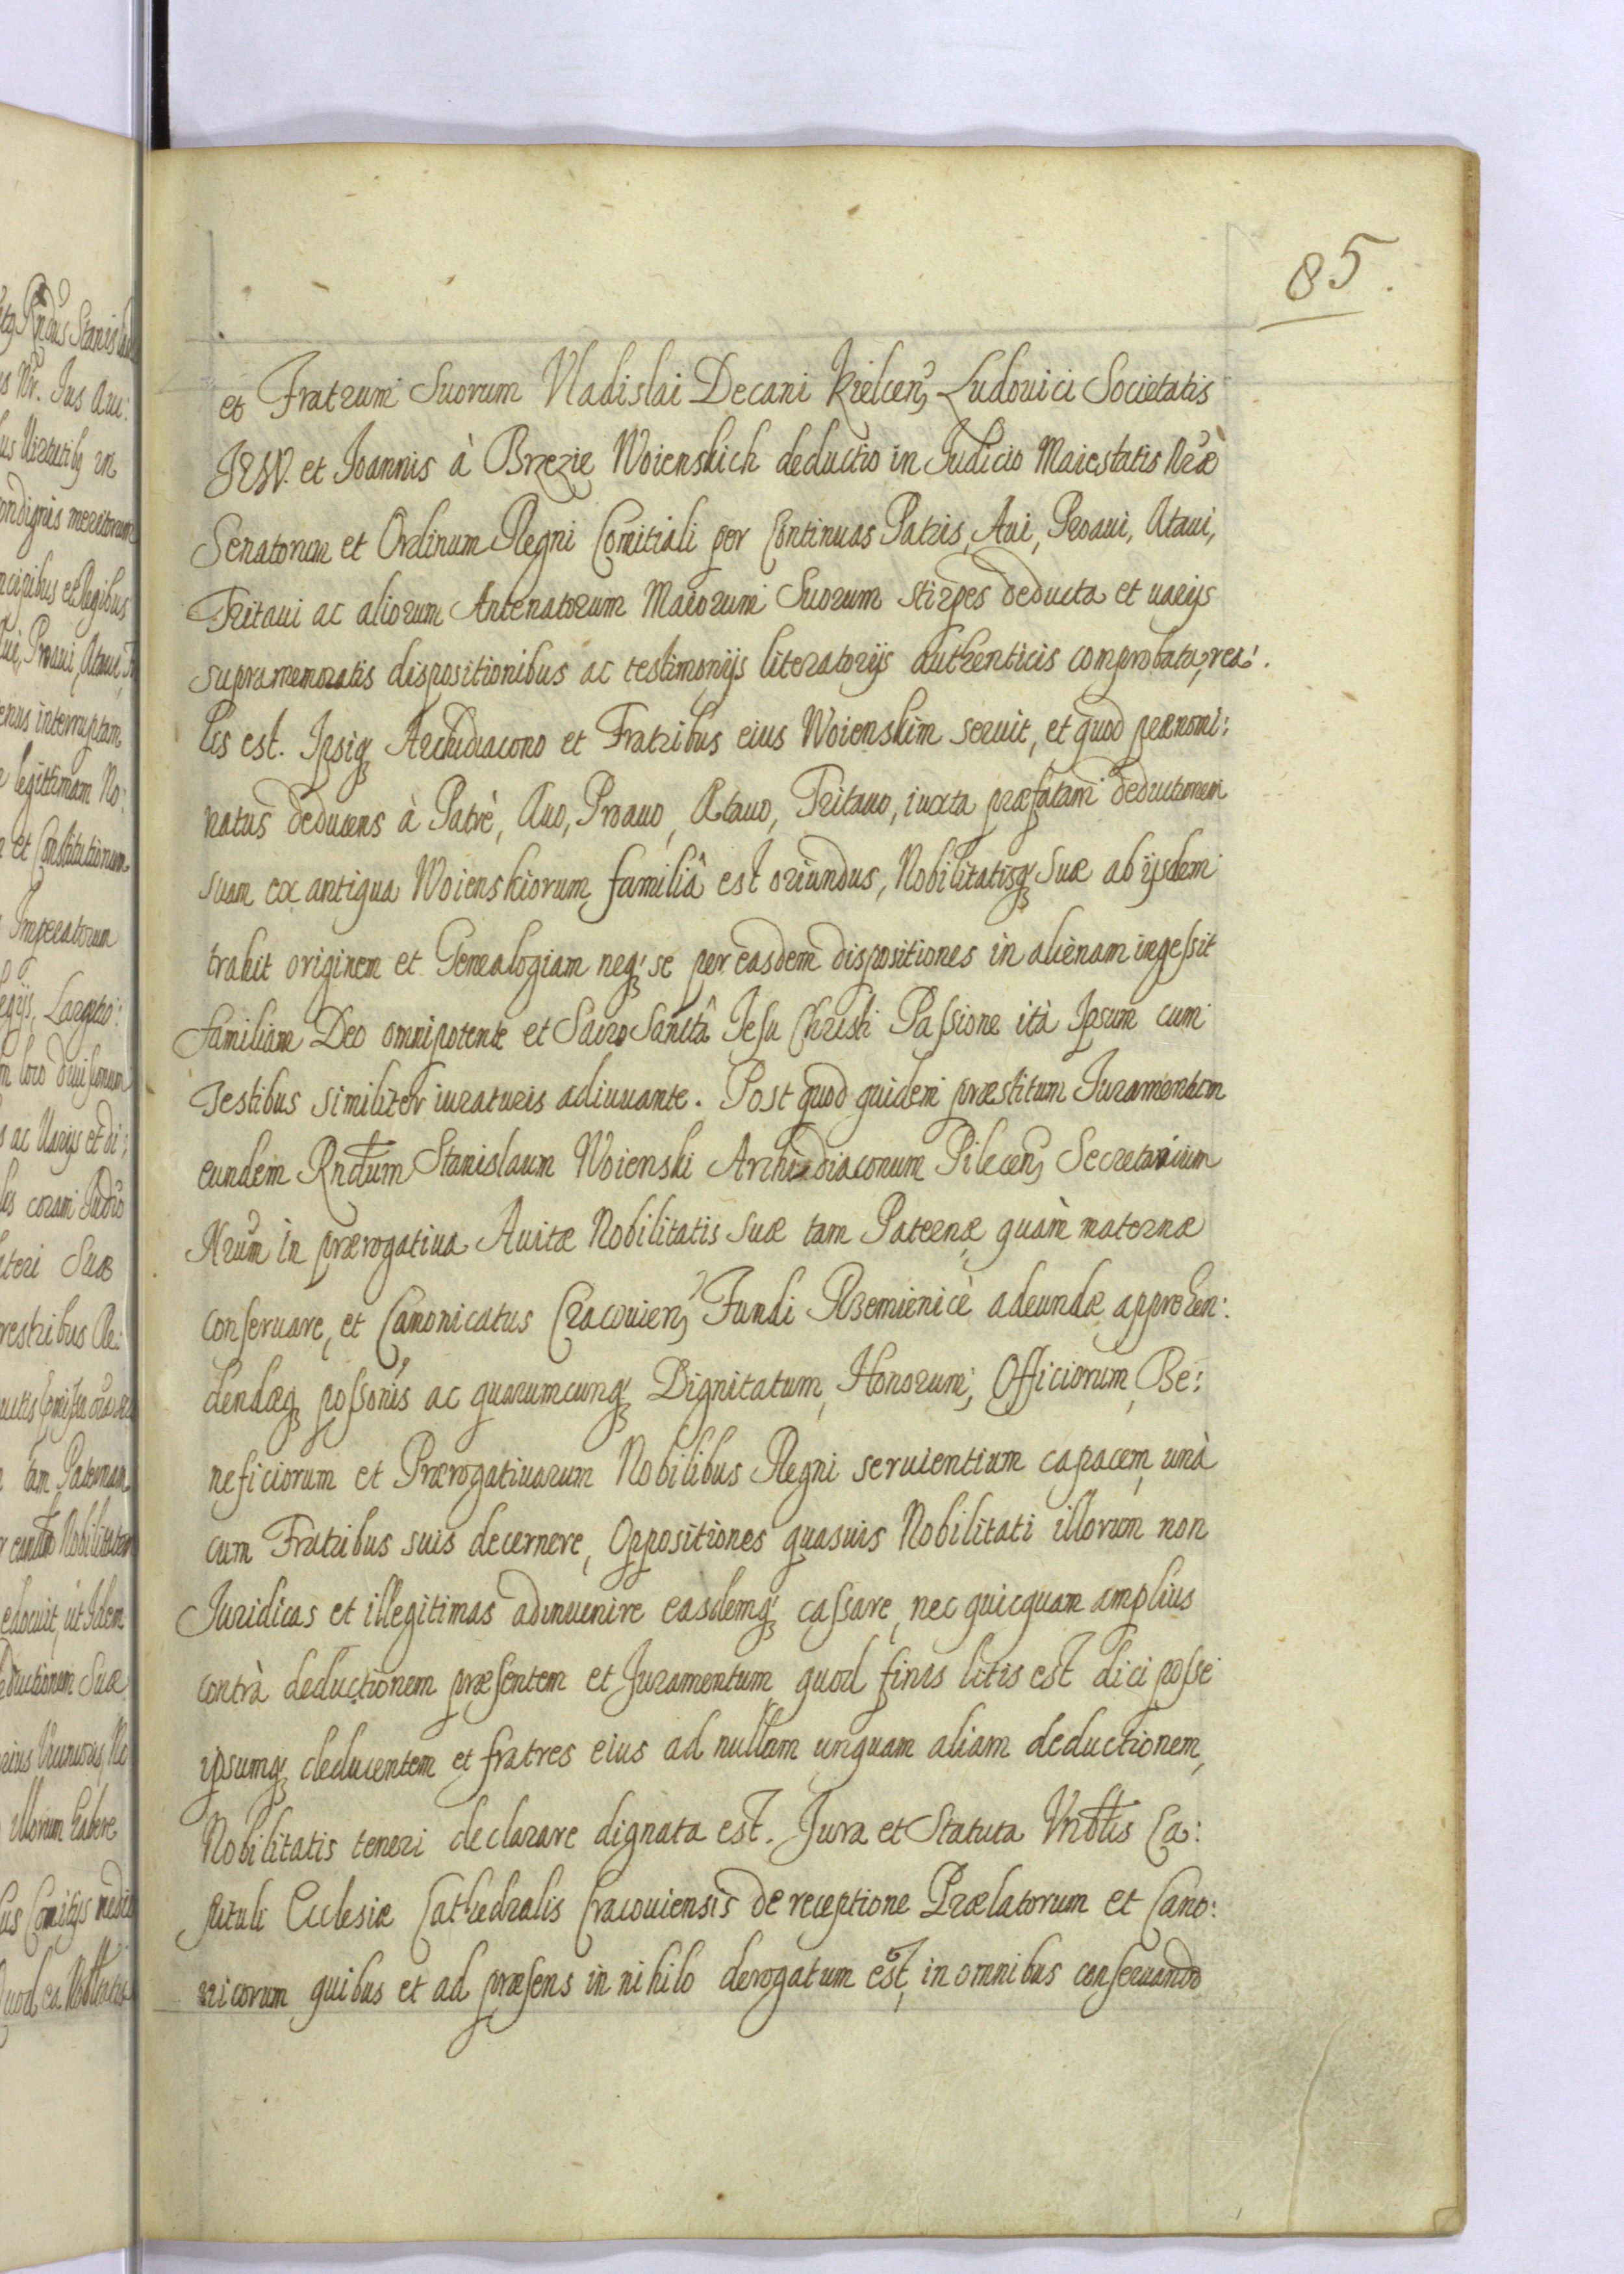 85.
et Fratrum Suorum Vladislai Decani Kielcen, Ludouici Societatis
JESV. et Joannis à Brzezie Woienskich deductio in Judicio Maiestatis Nræ
Senatorum et Ordinum Regni Comitiali per Continuas Patris, Aui, Proaui, Ataui,
Tritaui ac aliorum Antenatorum Maiorum Suorum stirpes deducta et uarijs
supramemoratis dispositionibus ac testimonijs literatorijs authenticis comprobata, rea:
lis est. Ipsiq Archidiacono et Fratribus eius Woienskim seruit, et quod prænomi:
natus deducens à Patrè, Auo, Proauo, Atauo, Tritauo, iuxta præfatam deductionem
suam ex antiqua Woienskiorum familiâ est oriundus, Nobilitatisq Suæ ab ijsdem
trahit originem et Genealogiam neq se per easdem dispositiones in alienam ingessit
familiam Deo omnipotente et Sacro Sanctâ Jesu Christi Passione ità Ipsum cum
Testibus similiter iuraturis adiuuante. Post quod quidem præstitum Juramentum
eundem Rndum Stanislaum Woienski Archidiaconum Pilecen, Secretarium
Nrum in prærogatiua Auitæ Nobilitatis suæ tam Paternæ quàm maternæ
conseruare, et Canonicatus Cracouien, Fundi Rzemienicè adeundæ apprehen:
dendæq possonis ac quarumcunq Dignitatum, Honorum, Officiorum, Be:
neficiorum et Prærogatiuarum Nobilibus Regni seruientium capacem, unà
cum Fratribus suis decernere, Oppositiones quasuis Nobilitati illorum non
Juridicas et illegitimas adinuenire easdemq cassare, nec quicquam amplius
contrà deductionem præsentem et Juramentum quod finis litis est dici posse
ipsumq deducentem et fratres eius ad nullam unquam aliam deductionem,
Nobilitatis teneri declarare dignata est. Jura et Statuta Vnblis Ca:
pituli Ecclesiæ Cathedralis Cracouiensis de receptione Prælatorum et Cano:
nicorum quibus et ad præsens in nihilo derogatum est, in omnibus conseruando